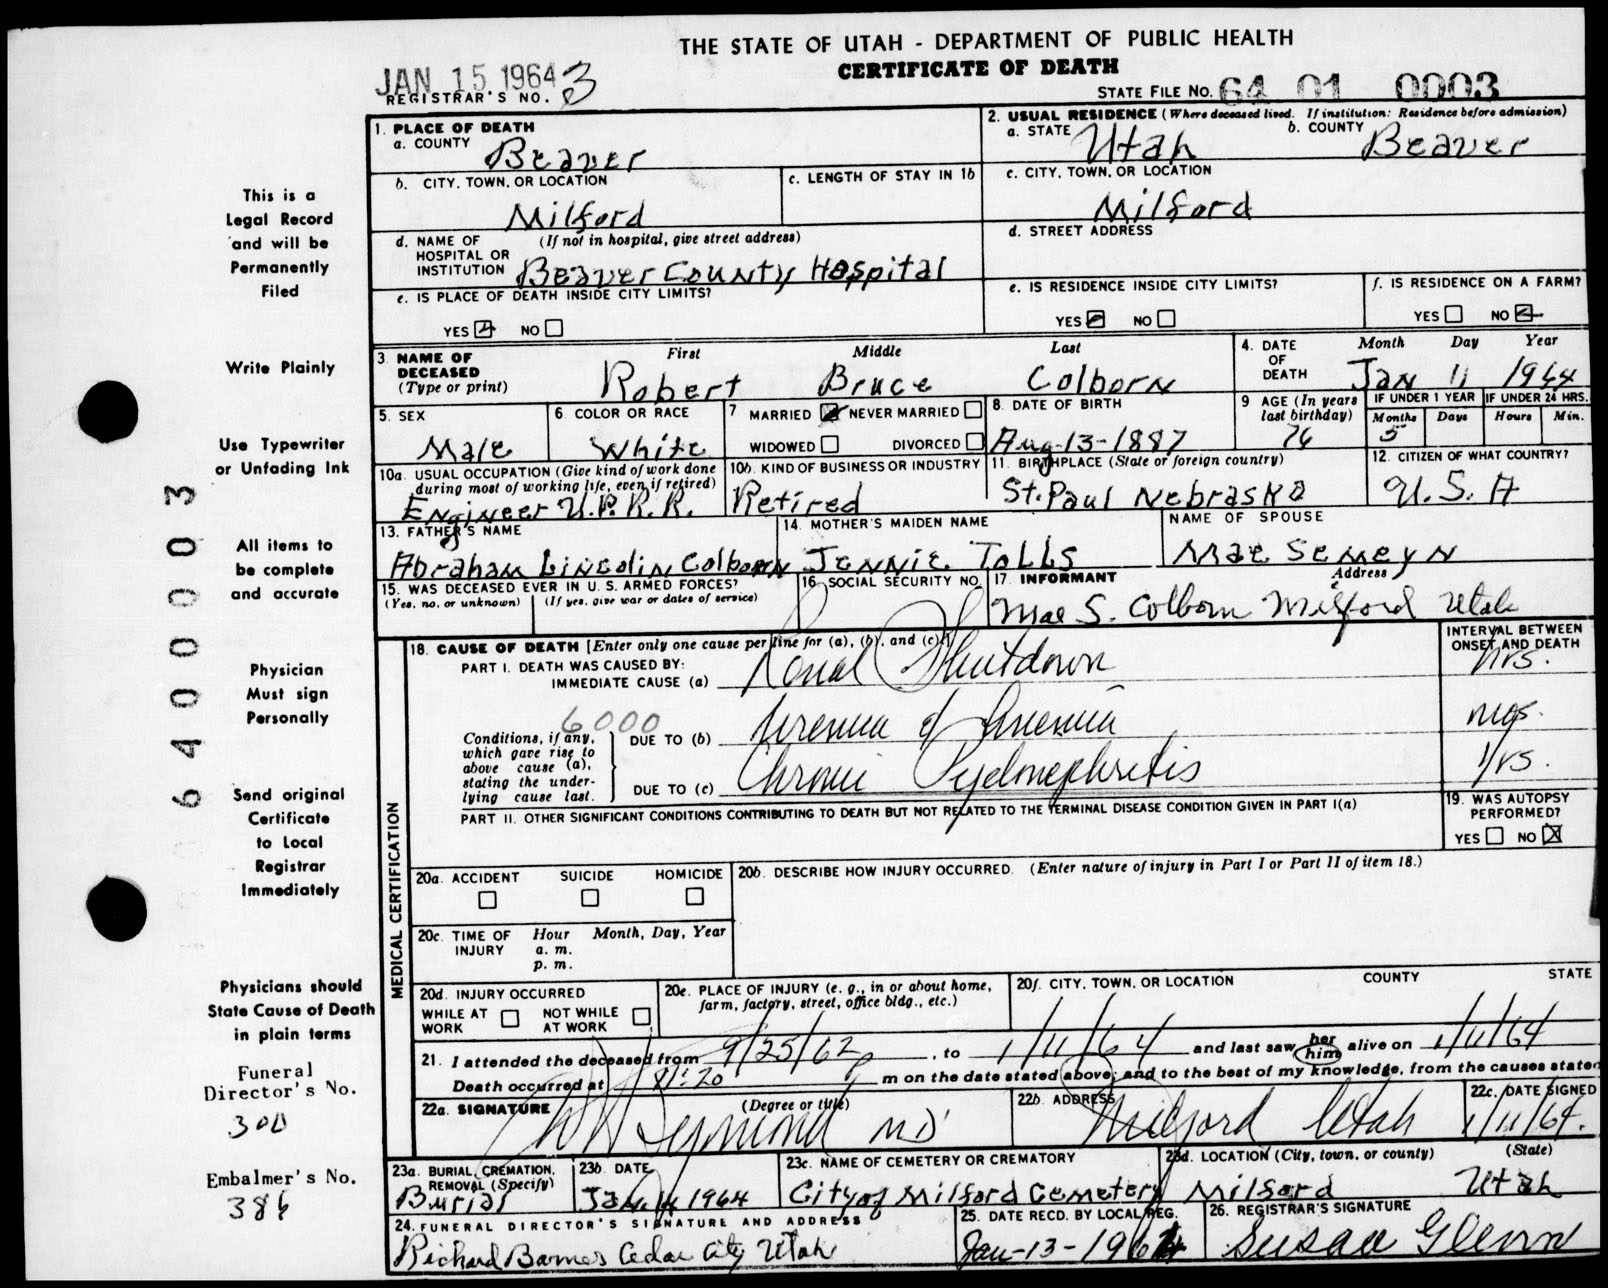 THE STATE OF UTAH - DEPARTMENT OF PUBLIC HEALTH
CERTIFICATE OF DEATH
JAN 15 1964
REGISTRAR'S NO. 3
STATE FILE NO. 64 01 0003
1. PLACE OF DEATH
a. COUNTY Beaver
2. USUAL RESIDENCE (Where deceased lived. If institution: Residence before admission)
a. STATE Utah b. COUNTY Beaver
b. CITY, TOWN, OR LOCATION Milford
c. LENGTH OF STAY IN 1b
c. CITY, TOWN, OR LOCATION Milford
d. NAME OF HOSPITAL OR INSTITUTION (If not in hospital, give street address) Beaver County Hospital
d. STREET ADDRESS
e. IS PLACE OF DEATH INSIDE CITY LIMITS?
YES NO
e. IS RESIDENCE INSIDE CITY LIMITS?
YES NO
f. IS RESIDENCE ON A FARM?
YES NO
3. NAME OF DECEASED (Type or print)
First Middle Last
Robert Bruce Colborn
4. DATE OF DEATH Month Day Year
Jan 11 1964
5. SEX Male
6. COLOR OR RACE White
7 MARRIED NEVER MARRIED
WIDOWED DIVORCED
8. DATE OF BIRTH Aug-13-1887
9 AGE (In years last birthday) 76
IF UNDER 1 YEAR Months Days 5
IF UNDER 24 HRS. Hours Min.
10a. USUAL OCCUPATION (Give kind of work done during most of working life, even if retired)
Engineer U.P.R.R.
10b. KIND OF BUSINESS OR INDUSTRY Retired
11. BIRTHPLACE (State or foreign country) St. Paul Nebraska
12. CITIZEN OF WHAT COUNTRY? U.S.A
13. FATHER'S NAME Abraham Lincolin Colborn
14. MOTHER'S MAIDEN NAME Jennie Tolls
NAME OF SPOUSE Mae Semeyn
15. WAS DECEASED EVER IN U.S. ARMED FORCES?
(Yes, no, or unknown) (If yes, give war or dates of service)
16. SOCIAL SECURITY NO.
17. INFORMANT Address
Mae S. Colborn Milford Utah
MEDICAL CERTIFICATION
18. CAUSE OF DEATH [Enter only one cause per line for (a), (b), and (c).]
INTERVAL BETWEEN ONSET AND DEATH
PART I. DEATH WAS CAUSED BY:
IMMEDIATE CAUSE (a) Renal Shutdown hrs.
6000
Conditions, if any, which gave rise to above cause (a), stating the underlying cause last.
DUE TO (b) Uremia & Anemia mos.
DUE TO (c) Chronic Pyelonephritis Yrs.
PART II. OTHER SIGNIFICANT CONDITIONS CONTRIBUTING TO DEATH BUT NOT RELATED TO THE TERMINAL DISEASE CONDITION GIVEN IN PART I(a)
19. WAS AUTOPSY PERFORMED?
YES NO
20a. ACCIDENT SUICIDE HOMICIDE
20b. DESCRIBE HOW INJURY OCCURRED. (Enter nature of injury in Part I or Part II of item 18.)
20c. TIME OF INJURY Hour Month, Day, Year
a. m.
p. m.
20d. INJURY OCCURRED
WHILE AT WORK NOT WHILE AT WORK
20e. PLACE OF INJURY (e. g., in or about home, farm, factory, street, office bldg., etc.)
20f. CITY, TOWN, OR LOCATION COUNTY STATE
21. I attended the deceased from 9/25/62, to 1/11/64 and last saw her him alive on 1/11/64
Death occurred at 8:20 p m on the date stated above; and to the best of my knowledge, from the causes stated
22a. SIGNATURE (Degree or title) MD
22b. ADDRESS Milford Utah
22c. DATE SIGNED 1/11/64.
23a. BURIAL, CREMATION, REMOVAL (Specify) Burial
23b. DATE Jan. 14 1964
23c. NAME OF CEMETERY OR CREMATORY City of Milford Cemetery
23d. LOCATION (City, town, or county) (State) Milford Utah
24. FUNERAL DIRECTOR'S SIGNATURE AND ADDRESS
Richard Barnes Cedar City Utah
25. DATE RECD. BY LOCAL REG. Jan-13-1964
26. REGISTRAR'S SIGNATURE Susan Glenn
This is a
Legal Record
and will be
Permanently
Filed
Write Plainly
Use Typewriter
or Unfading Ink
All items to
be complete
and accurate
Physician
Must sign
Personally
Send original
Certificate
to Local
Registrar
Immediately
Physicians should
State Cause of Death
in plain terms
Funeral
Director's No.
300
Embalmer's No.
386
6400003